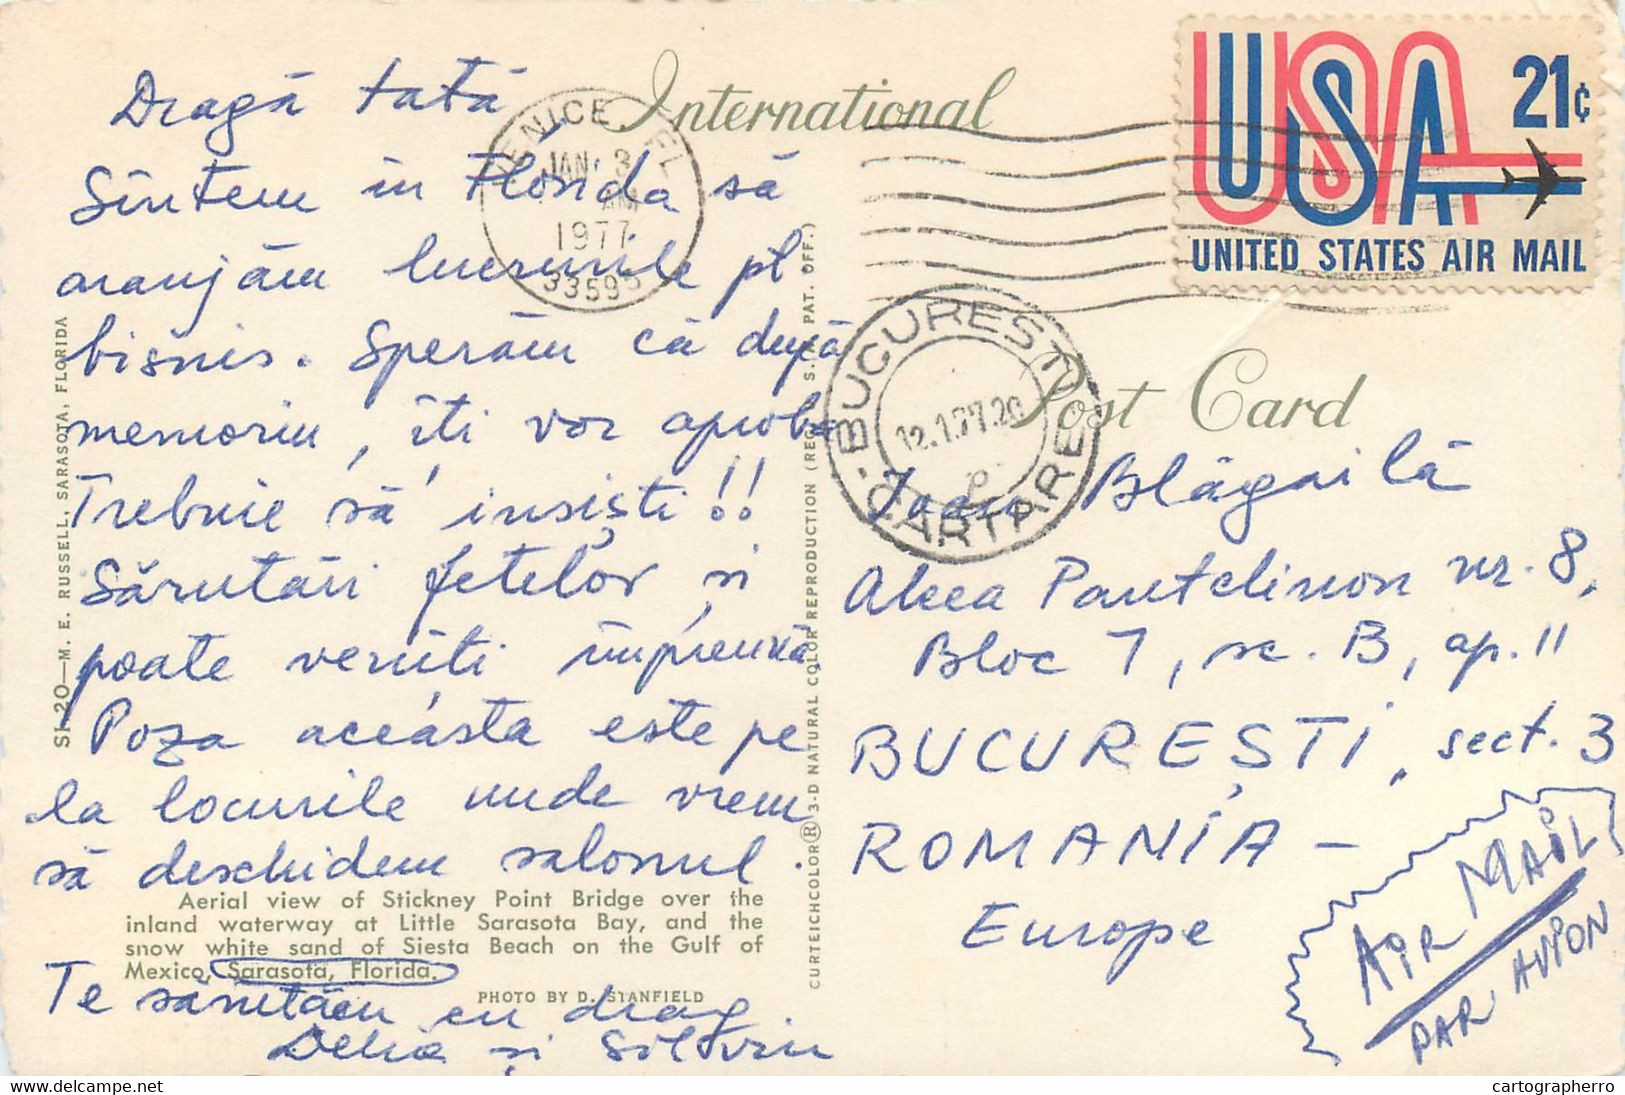 Dragă tată,
Sîntem în Florida să
aranjăm lucrurile pt.
bisnis. Sperăm că după
memoriu, îti vor aproba
Trebuie să insişti!!
Sărutări fetelor şi
poate veniti împreună
Poza aceasta este pe
la locurile unde vrem
să deschidem salonul.
Aerial view of Stickney Point Bridge over the
inland waterway at Little Sarasota Bay, and the
snow white sand of Siesta Beach on the Gulf of
Mexico, Sarasota, Florida.
PHOTO BY D. STANFIELD
Te sărutăm cu drag
Delia şi Siloviu
SI-20—M. E. RUSSELL, SARASOTA, FLORIDA
CURTEICHCOLOR® 3-D NATURAL COLOR REPRODUCTION (REG. U.S. PAT. OFF.)
International
Post Card
VENICE FL
JAN 3
AM
1977
33595
USA
21¢
UNITED STATES AIR MAIL
BUCUREŞTI
12.1.77.20
CARTARE
Blăgăilă
Aleea Pantelimon nr. 8,
Bloc 7, sc. B, ap. 11
BUCUREŞTI, sect. 3
ROMANIA –
Europe
AIR MAIL
PAR AVION
cartographerro